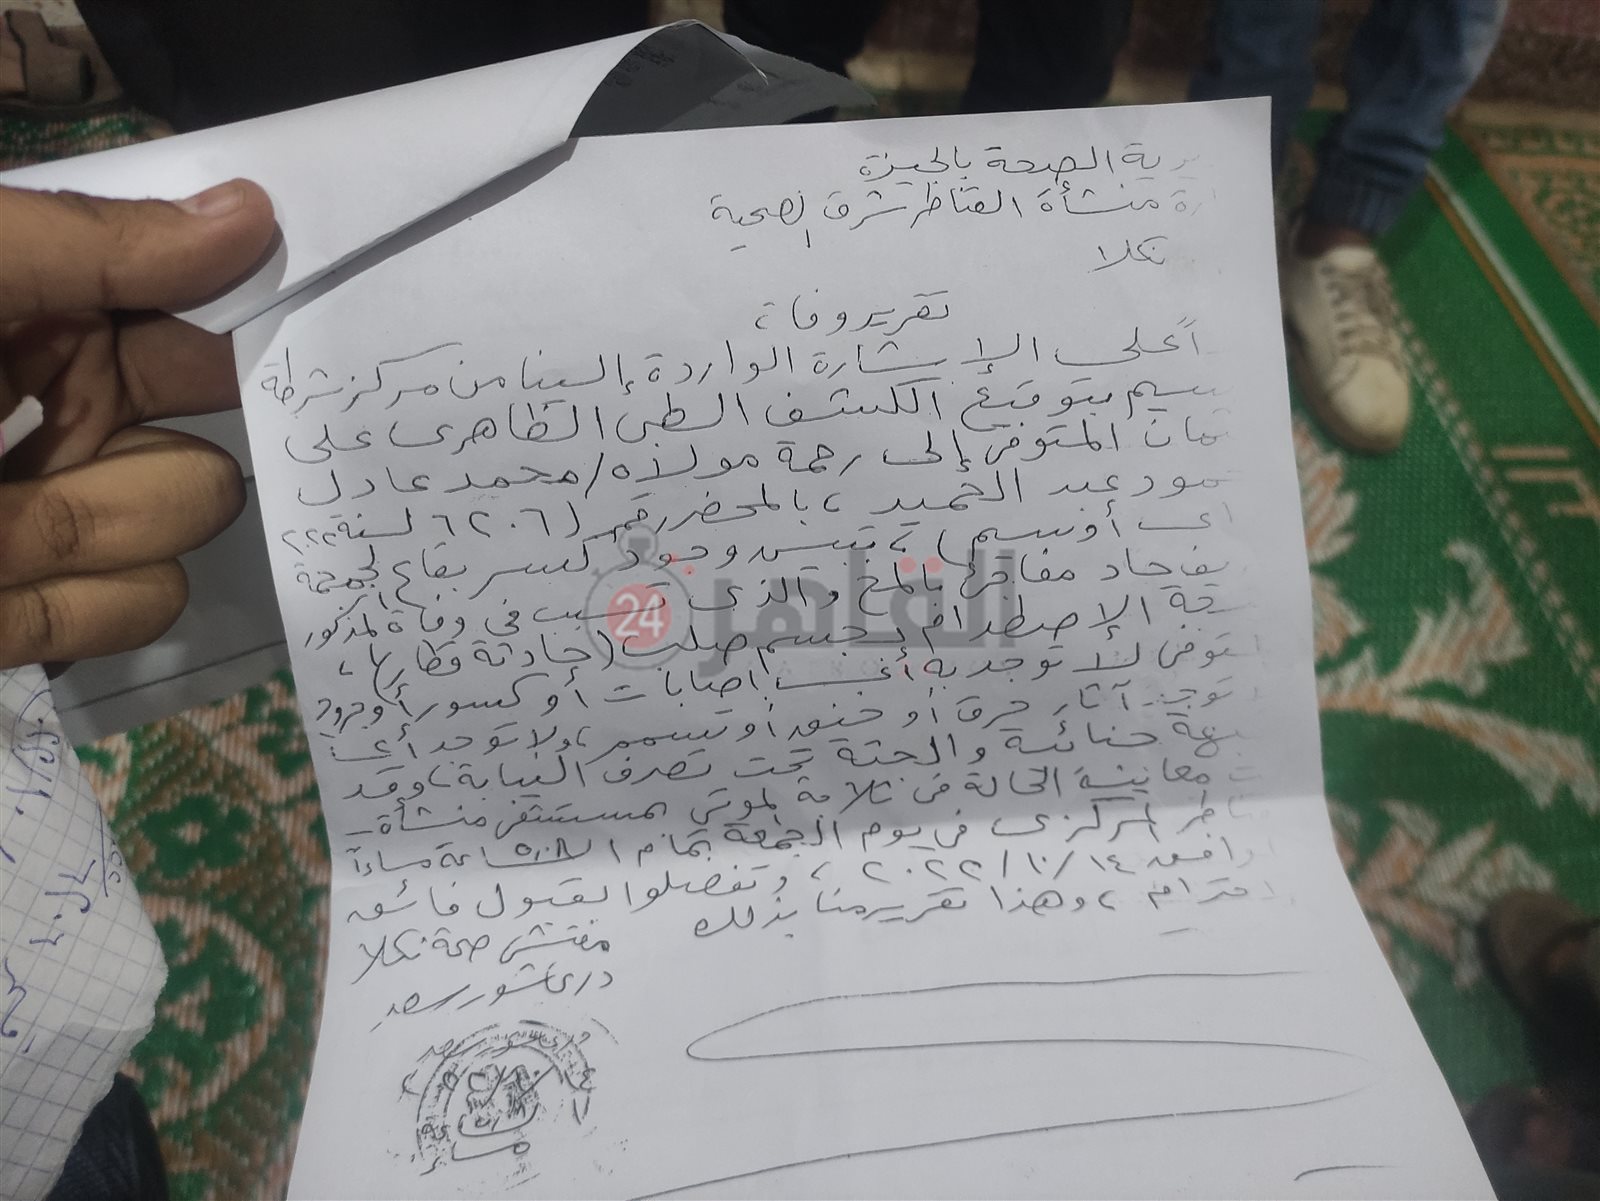 يرية الصحة بالجيزة
ارة منشأة القناطر شرق الصحية
نكلا
تقرير وفاة
اً على الإشارة الواردة إلينا من مركز شرطة
سيم بتوقيع الكشف الطبى الظاهرى على
ثمان المتوفى إلى رحمة مولاه/محمد عادل
مود عبد الحميد ، بالمحضر رقم (٦٢٠٦ لسنة ٢٠٢٢
ى أوسيم) ، تبين وجود كسر بقاع الجمجمة
يف حاد مفاجئ بالمخ والذى تسبب فى وفاة المذكور
يجة الإصطدام بجسم صلب (حادثة قطار) ،
لمتوفى لا توجد به أى إصابات أو كسور أو جروح
توجد آثار حرق أو خنق أو تسمم ، ولا توجد أى
بهة جنائية والجثة تحت تصرف النيابة ، وقد
ت معاينة الحالة فى ثلاجة الموتى بمستشفى منشأة
ناطر المركزى فى يوم الجمعة بتمام الساعة ٥:٠٨ مساءاً
وافق ١٤/١٠/٢٠٢٢ ، وتفضلوا بقبول فائق
احترام ، وهذا تقرير منا بذلك
مفتش صحة نكلا
عاشور سعد
القاهرة 24